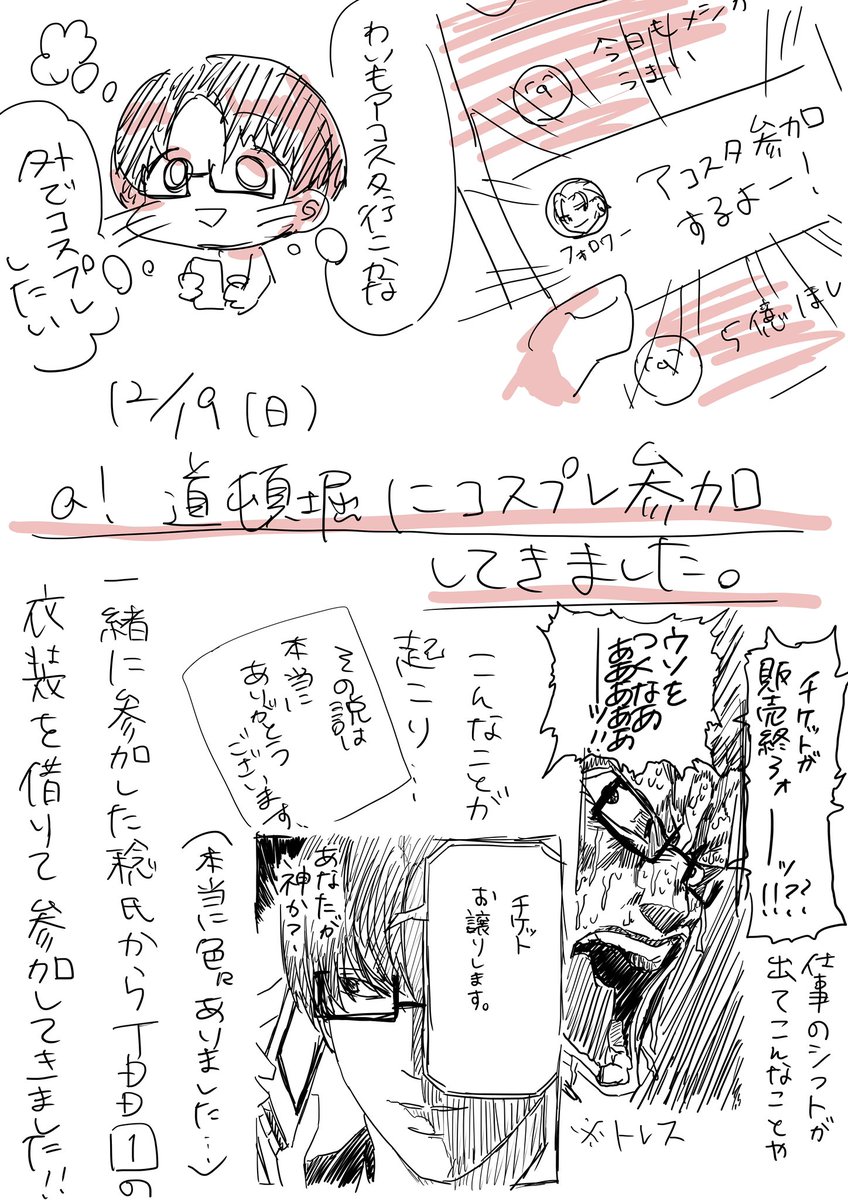 今日もメシが
うまい
アコスタ参加
するよー!
フォロワー
5億ほし
わいもアコスタ行こかな
外でコスプレ
したい
12/19(日)
a!道頓堀にコスプレ参加
してきました。
チケットが
販売終了ォ
ーーッ!!??
仕事のシフトが
出てこんなことや
ウソを
つくなぁ
ああああ
ああああ
ーーッ!!
※トレス
こんなことが
起こり…
その説は
本当に
ありがとう
ございます
チケット
お譲りします。
あなたが
神か?
(本当に色々ありました…)
一緒に参加した稔氏からTDD1の
衣装を借りて参加してきました!!